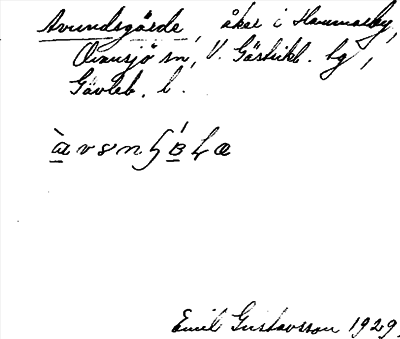 Avundsgärde, åker i Hammarby,
Ovansjö sn, V. Gästrikl. hg,
Gävleb. l.
Emil Gustavsson 1929.